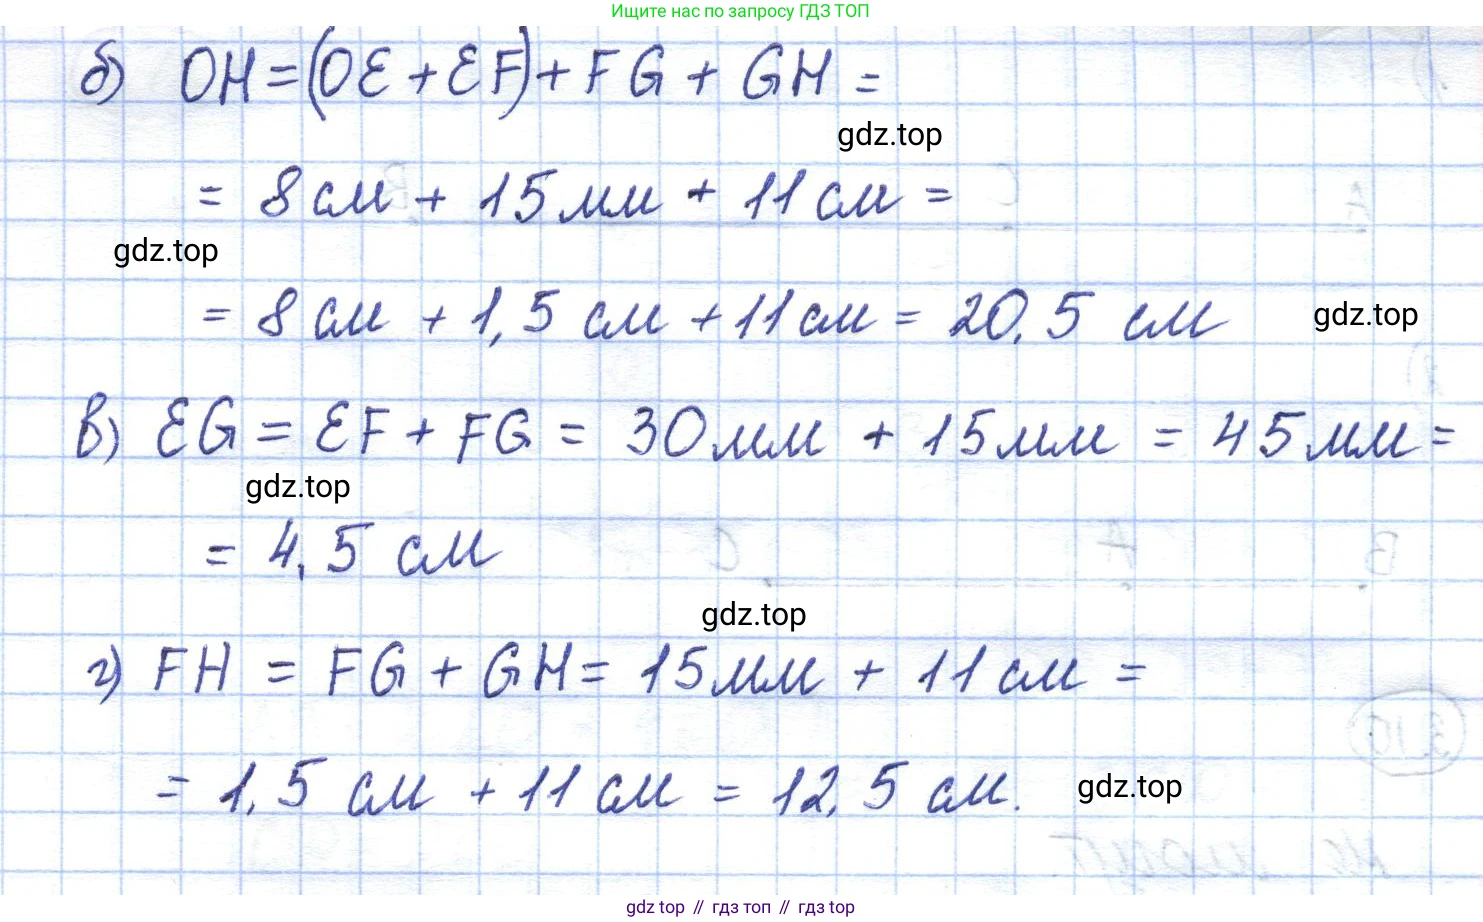 Ищите нас по запросу ГДЗ ТОП
б) OH = (OE + EF) + FG + GH =
gdz.top
= 8 см + 15 мм + 11 см =
gdz.top
= 8 см + 1,5 см + 11 см = 20,5 см gdz.top
в) EG = EF + FG = 30 мм + 15 мм = 45 мм =
gdz.top
= 4,5 см
gdz.top
г) FH = FG + GH = 15 мм + 11 см =
= 1,5 см + 11 см = 12,5 см. gdz.top
gdz top // гдз топ // gdz top